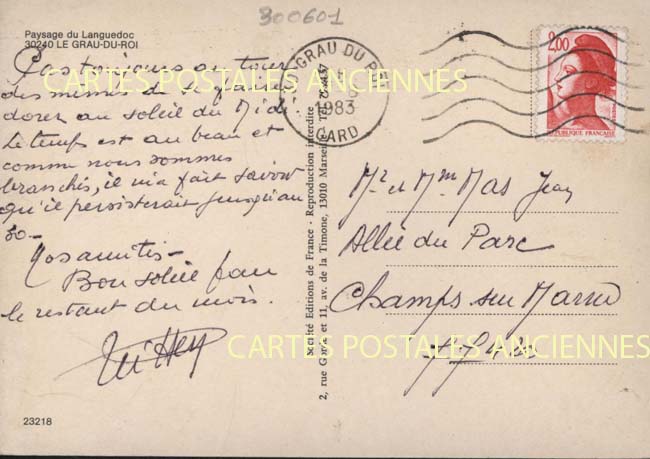 300601
Paysage du Languedoc
30240 LE GRAU-DU-ROI
Pas toujours au tour
des mêmes de se faire
dorer au soleil du Midi
Le temps est au beau et
comme nous sommes
branchés, il m'a fait savoir
qu'il persisterait jusqu'au
30-
Bon soleil pour
le restant du mois.
23218
Société Editions de France - Reproduction interdite
2, rue et 11, av. de la Timone, 13010 Marseille
GRAU DU ROI
1983
GARD
2,00
REPUBLIQUE FRANCAISE
Mr et Mme Mas Jean
Allée du Parc
Champs sur Marne
77420
CARTES POSTALES ANCIENNES
CARTES POSTALES ANCIENNES